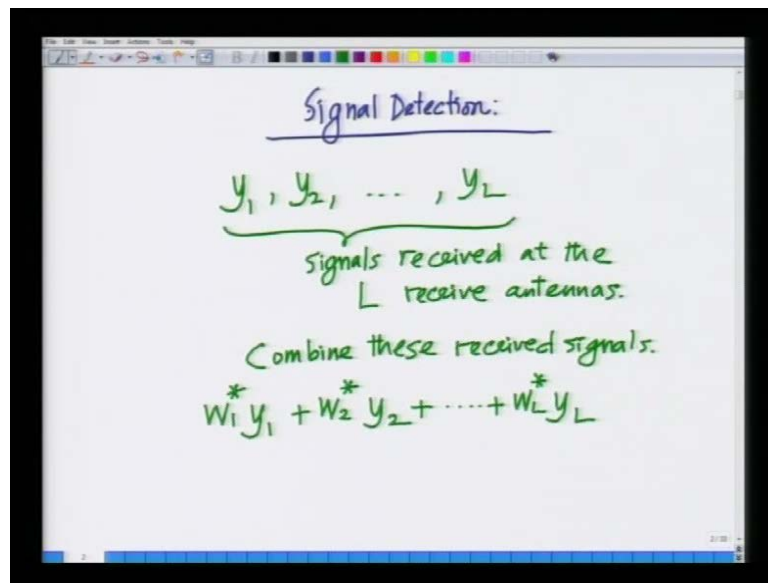 File Edit View Insert Actions Tools Help
Signal Detection:
y₁, y₂, ...., y_L
signals received at the
L receive antennas.
Combine these received signals.
W₁* y₁ + W₂* y₂ + ..... + W_L* y_L